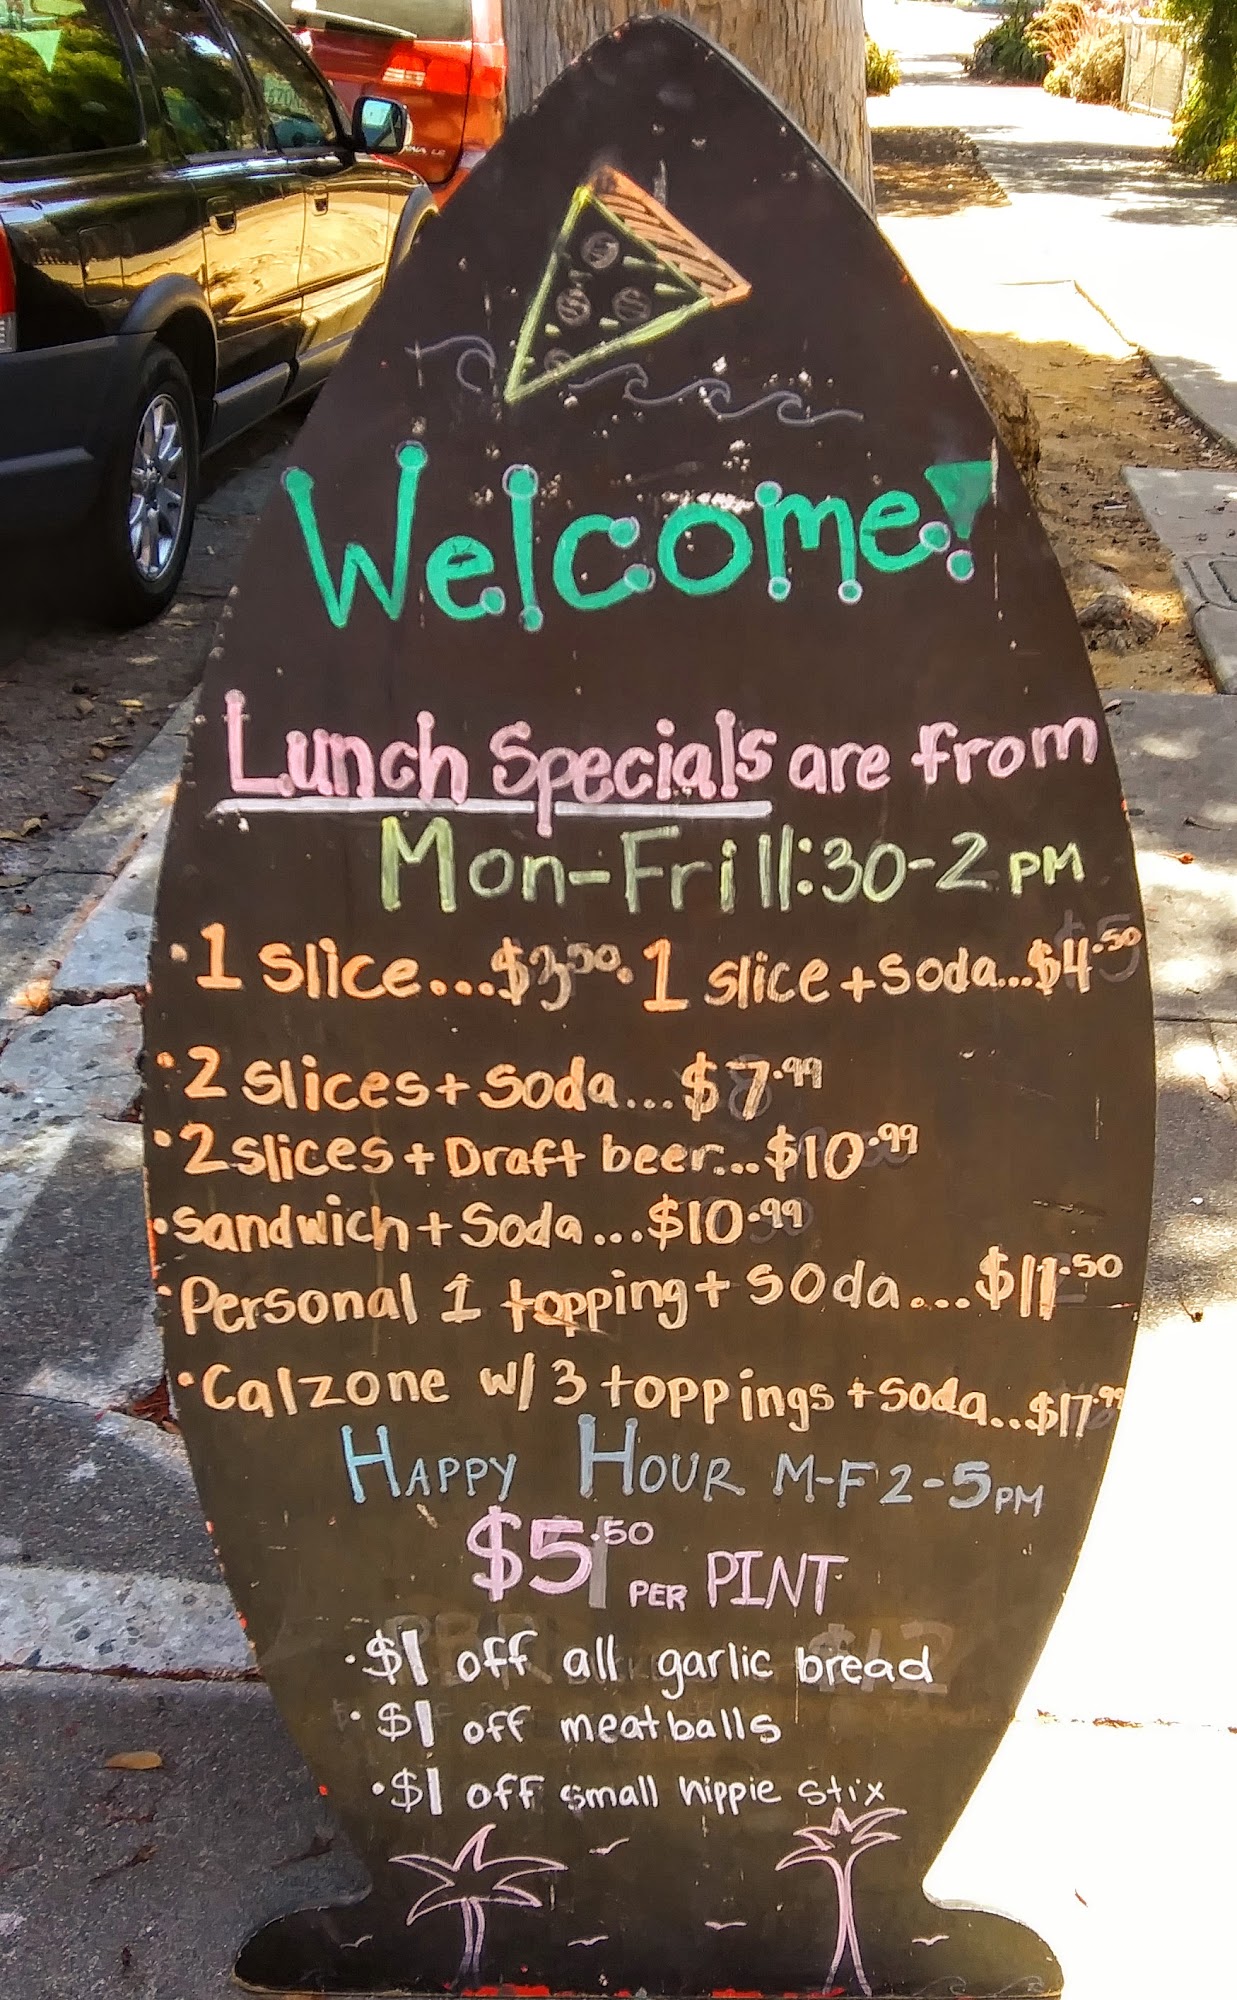 Welcome!
Lunch Specials are from
Mon-Fri 11:30-2 PM
• 1 slice...$3.50 • 1 slice + Soda...$4.50
• 2 slices + Soda...$7.99
• 2 slices + Draft beer...$10.99
• Sandwich + Soda...$10.99
• Personal 1 topping + Soda...$11.50
• Calzone w/ 3 toppings + Soda...$17.99
HAPPY HOUR M-F 2-5 PM
$5.50 PER PINT
• $1 off all garlic bread
• $1 off meatballs
• $1 off small hippie stix